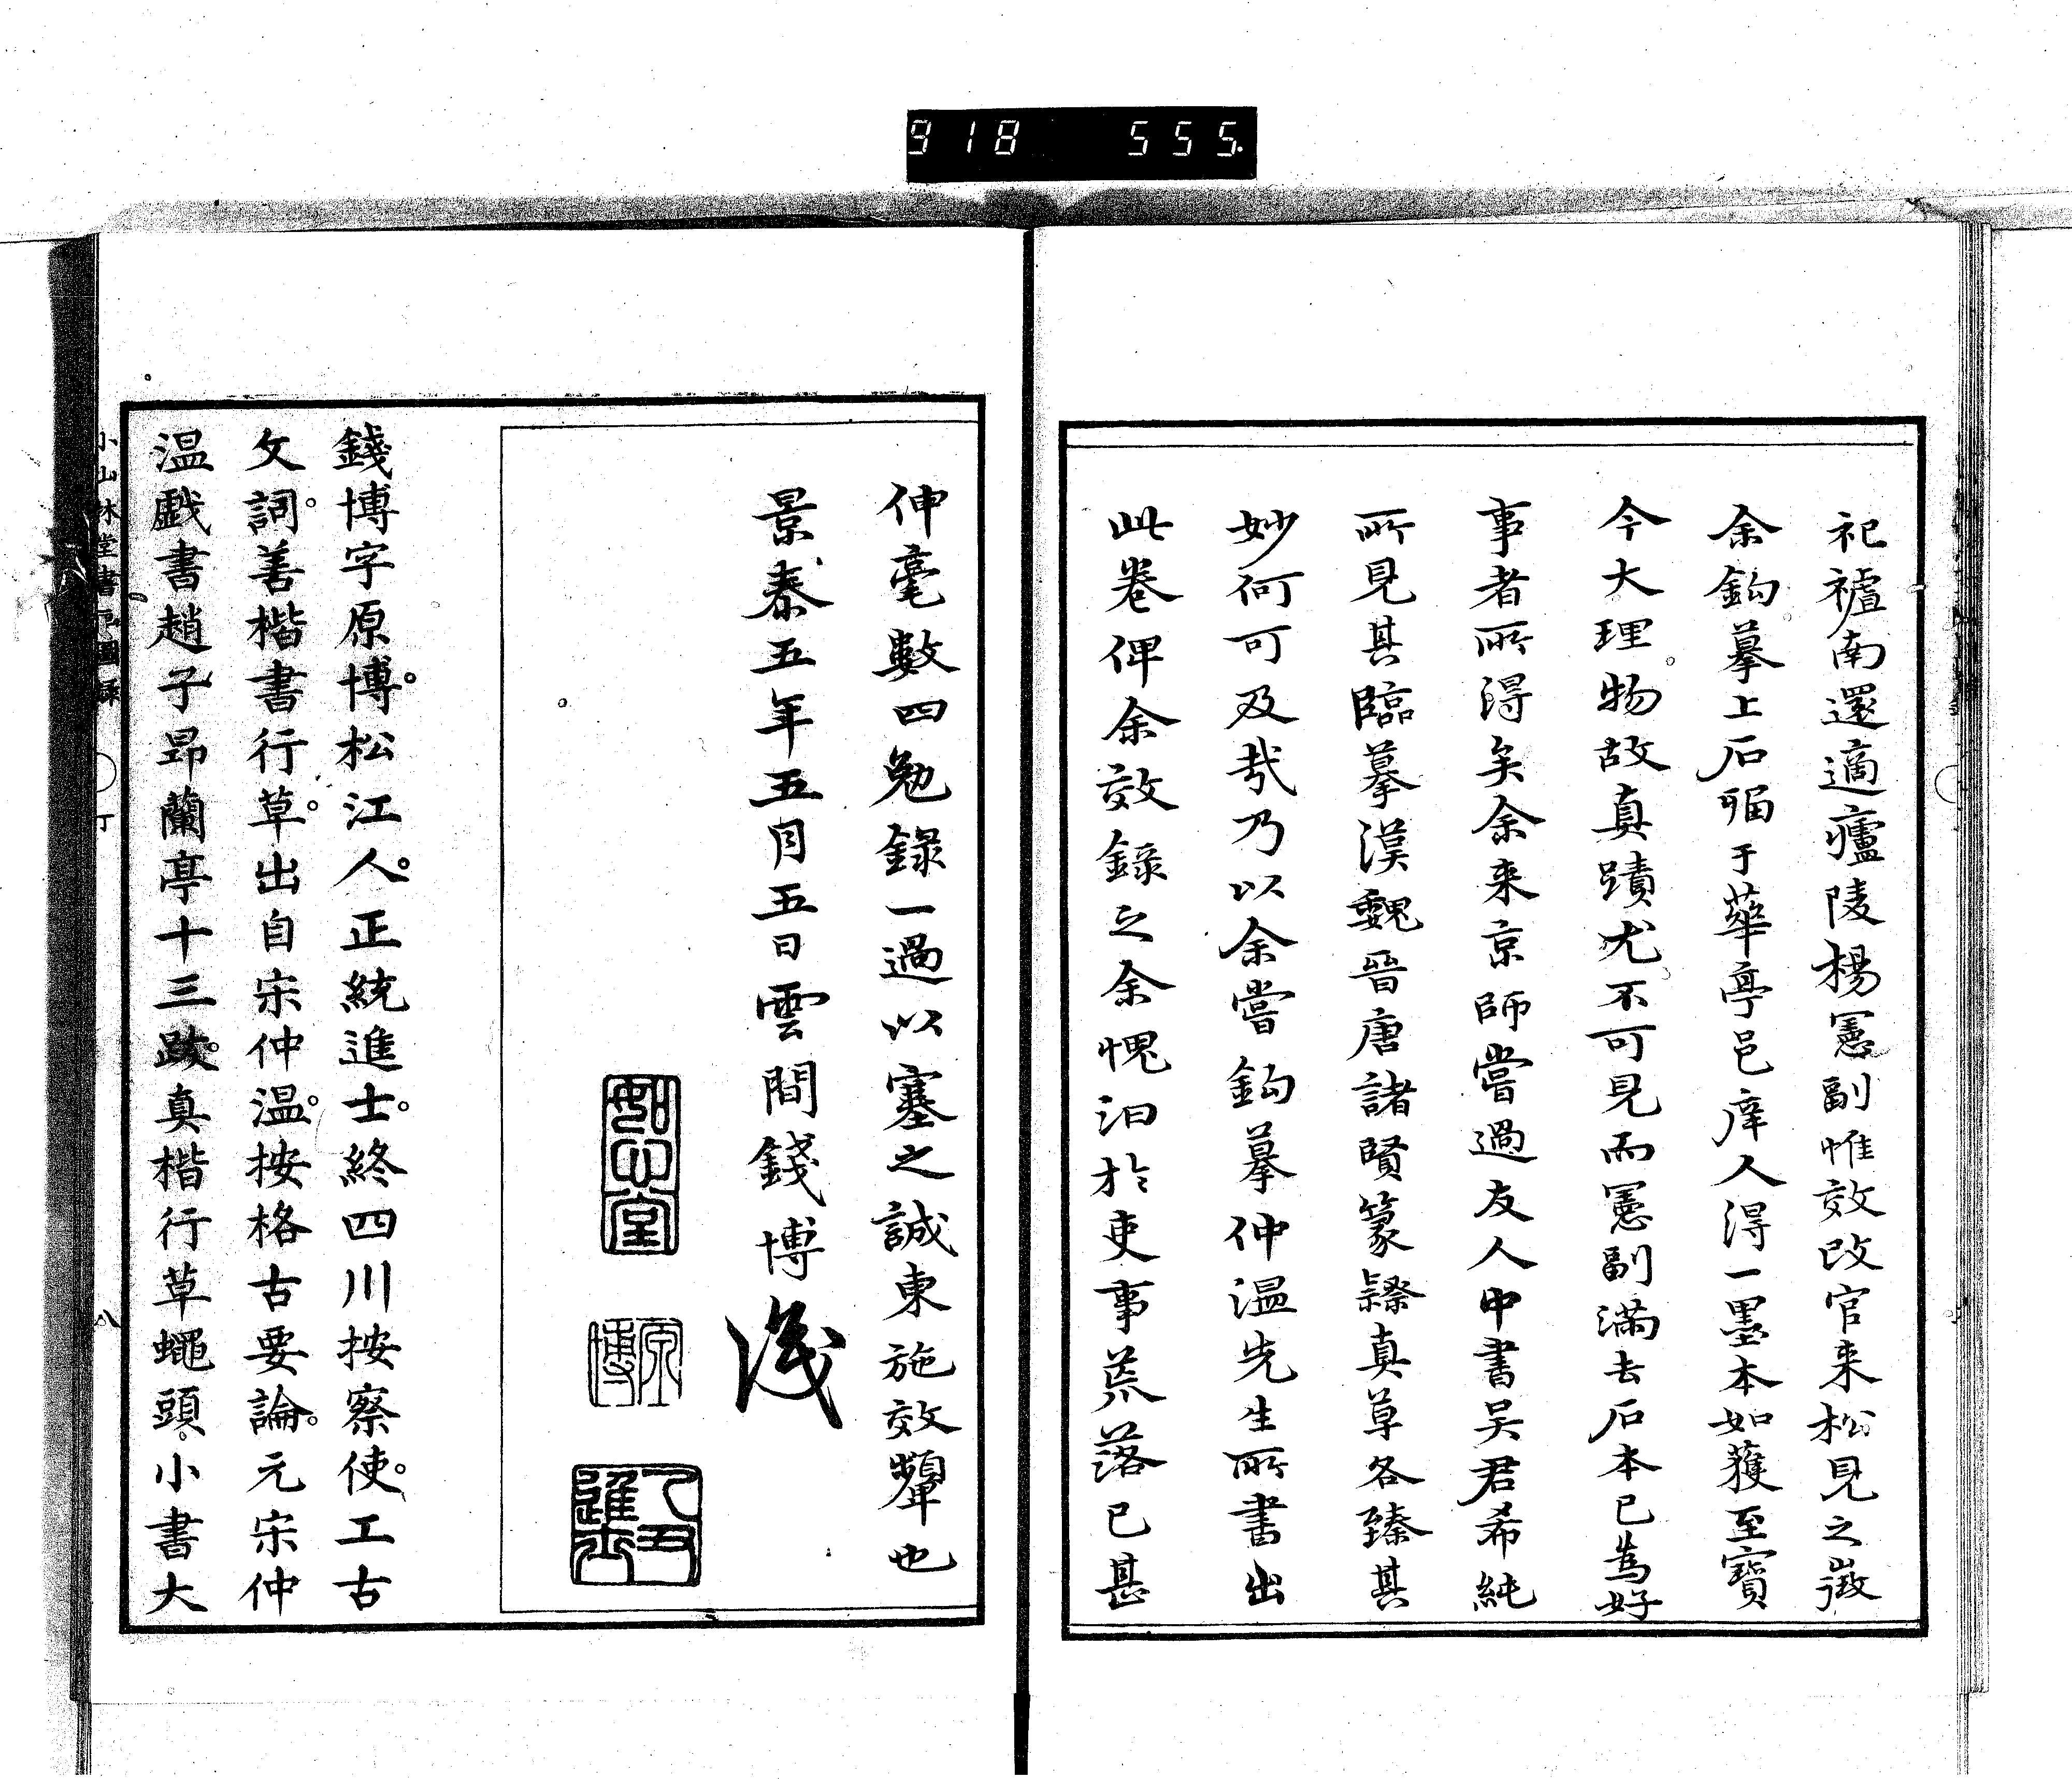 918 555.
祀禮南還適廬陵楊憲副惟效改官来松見之徵
余鈎摹上石留于華亭邑庠人得一墨本如獲至寶
今大理物故真蹟尤不可見而憲副滿去石本已為好
事者所得矣余来京師嘗過友人中書吴君希純
所見其臨摹漢魏晉唐諸賢篆隸真草各臻其
妙何可及哉乃以余嘗鈎摹仲温先生所書出
此卷俾余效錄之余愧汩於吏事荒落已甚
伸毫數四勉錄一過以塞之誠東施效顰也
景泰五年五月五日雲間錢博識
如心堂
原博
乙丑進士
錢博字原博。松江人。正統進士。終四川按察使。工古
文詞。善楷書行草。出自宋仲温。按格古要論。元宋仲
温戲書趙子昂蘭亭十三跋。真楷行草蠅頭。小書大
小山林堂書畫圖録 八